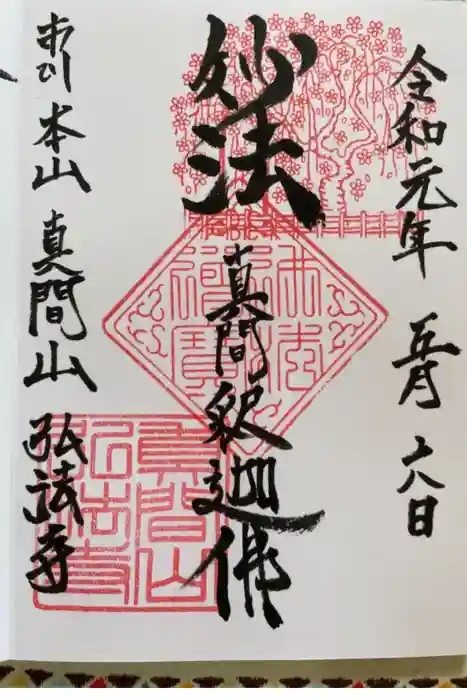 令和元年 五月 十八日
妙法
真間釈迦佛
市川 本山 真間山 弘法寺
真間山弘法寺